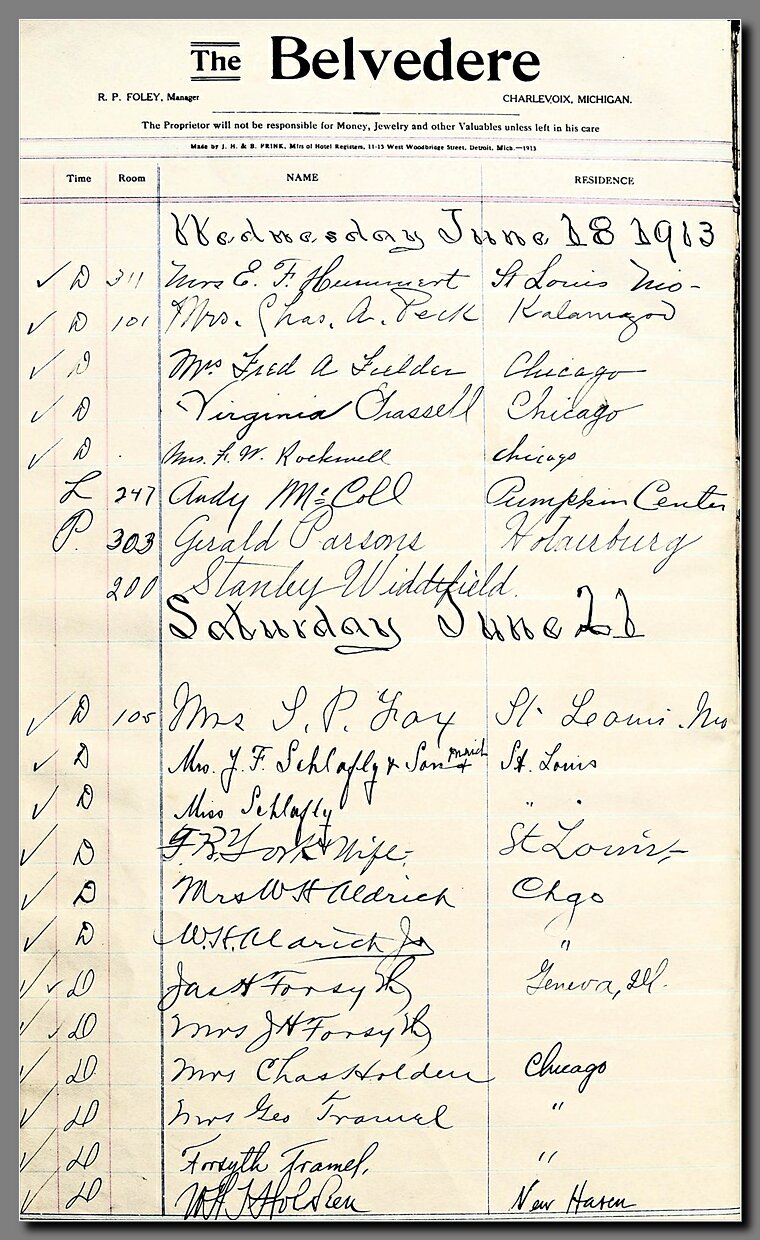 The Belvedere
R. P. FOLEY, Manager CHARLEVOIX, MICHIGAN.
The Proprietor will not be responsible for Money, Jewelry and other Valuables unless left in his care
Made by J. H. & B. FRINK, Mfrs of Hotel Registers, 11-13 West Woodbridge Street, Detroit, Mich.—1913
Time Room NAME RESIDENCE
Wednesday June 18 1913
✓ D 311 Mrs E. F. Hummert St Louis Mo-
✓ D 101 Mrs. Chas. A. Peck Kalamazoo
✓ D Mrs Fred A Fielder Chicago
✓ D Virginia Chassell Chicago
✓ D Mrs. F. W. Rockwell Chicago
L 247 Andy McColl Pumpkin Center
P. 303 Gerald Parsons Hotairburg
200 Stanley Widdifield.
Saturday June 21
✓ D 105 Mrs S. P. Fox St Louis. Mo
✓ D Mrs. J. F. Schlafly & Son + St. Louis
✓ D Miss Schlafly " "
✓ D F. R. York & Wife St Louis
✓ D Mrs W H Aldrich Chgo
✓ D W. H. Aldrich Jr "
✓ ✓ D Jas H Forsyth Geneva, Ill.
✓ ✓ D Mrs J H Forsyth
✓ D Mrs Chas Holden Chicago
✓ D Mrs Geo Tramel "
✓ D Forsyth Tramel, "
✓ D Holden New Haven